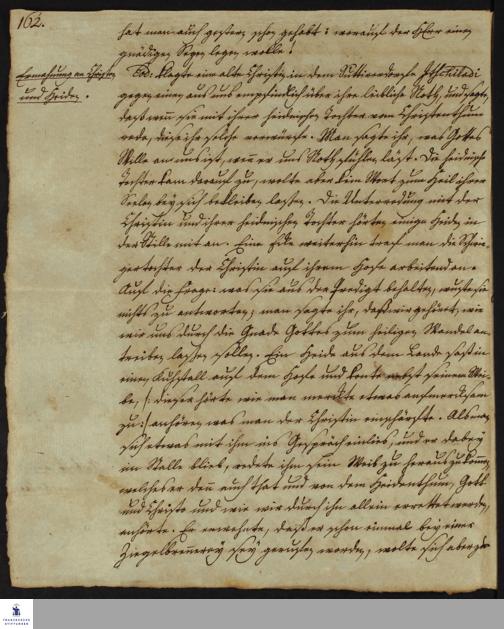 162.
hat man auch gestern schon gehabt: worauf der HErr einen
gnädigen Segen legen wolle!
Ermahnung an Christen
und Heiden.
Eod: klagte eine alte Christin, in dem Suttirerdorfe
gegen einen aus uns empfindlich über ihre leibliche Noth, und sagte,
daß wenn sie mit ihrer heidnischen Tochter vom Christenthum
rede, diese ihr solches verweise. Man sagte ihr, was Gottes
Wille an uns ist, wenn er uns Noth fühlen läßt. Die heidnische
Tochter kam darauf zu, wolte aber kein Wort zum Heil ihrer
Seelen bey sich bekleiben lassen. Die Unterredung mit der
Christin und ihrer heidnischen Tochter hörten einige Heiden in
der Stille mit an. Eine Ecke weiterhin traf man die Schwie-
gertochter der Christin auf ihrem Hofe arbeitend an.
Auf die Frage: was sie aus der Predigt behalten, wußte sie
nichts zu antworten; man sagte ihr, daß wir gehört, wie
wir uns durch die Gnade Gottes zum heiligen Wandel an-
treiben lassen sollen. Ein Heide aus dem Lande saß in
einem Kuhstall auf dem Hofe und nebst seinem Wei-
be, /: dieser hörte wie man merckte etwas aufmercksam
zu :/ anhören was man der Christin einschärfte. Als man
sich etwas mit ihm ins Gespräch einließ, und er dabey
im Stalle blieb, redete ihm sein Weib zu herauszukommen,
welches er denn auch that und von dem Heidenthum, Gott
und Christo und wie wir durch ihn allein errettet werden,
anhörte. Er erwehnte, daß er schon einmal bey einer
Ziegelbrennerey sey gerufen worden, wolte sich aber
FRANCKESCHE
STIFTUNGEN